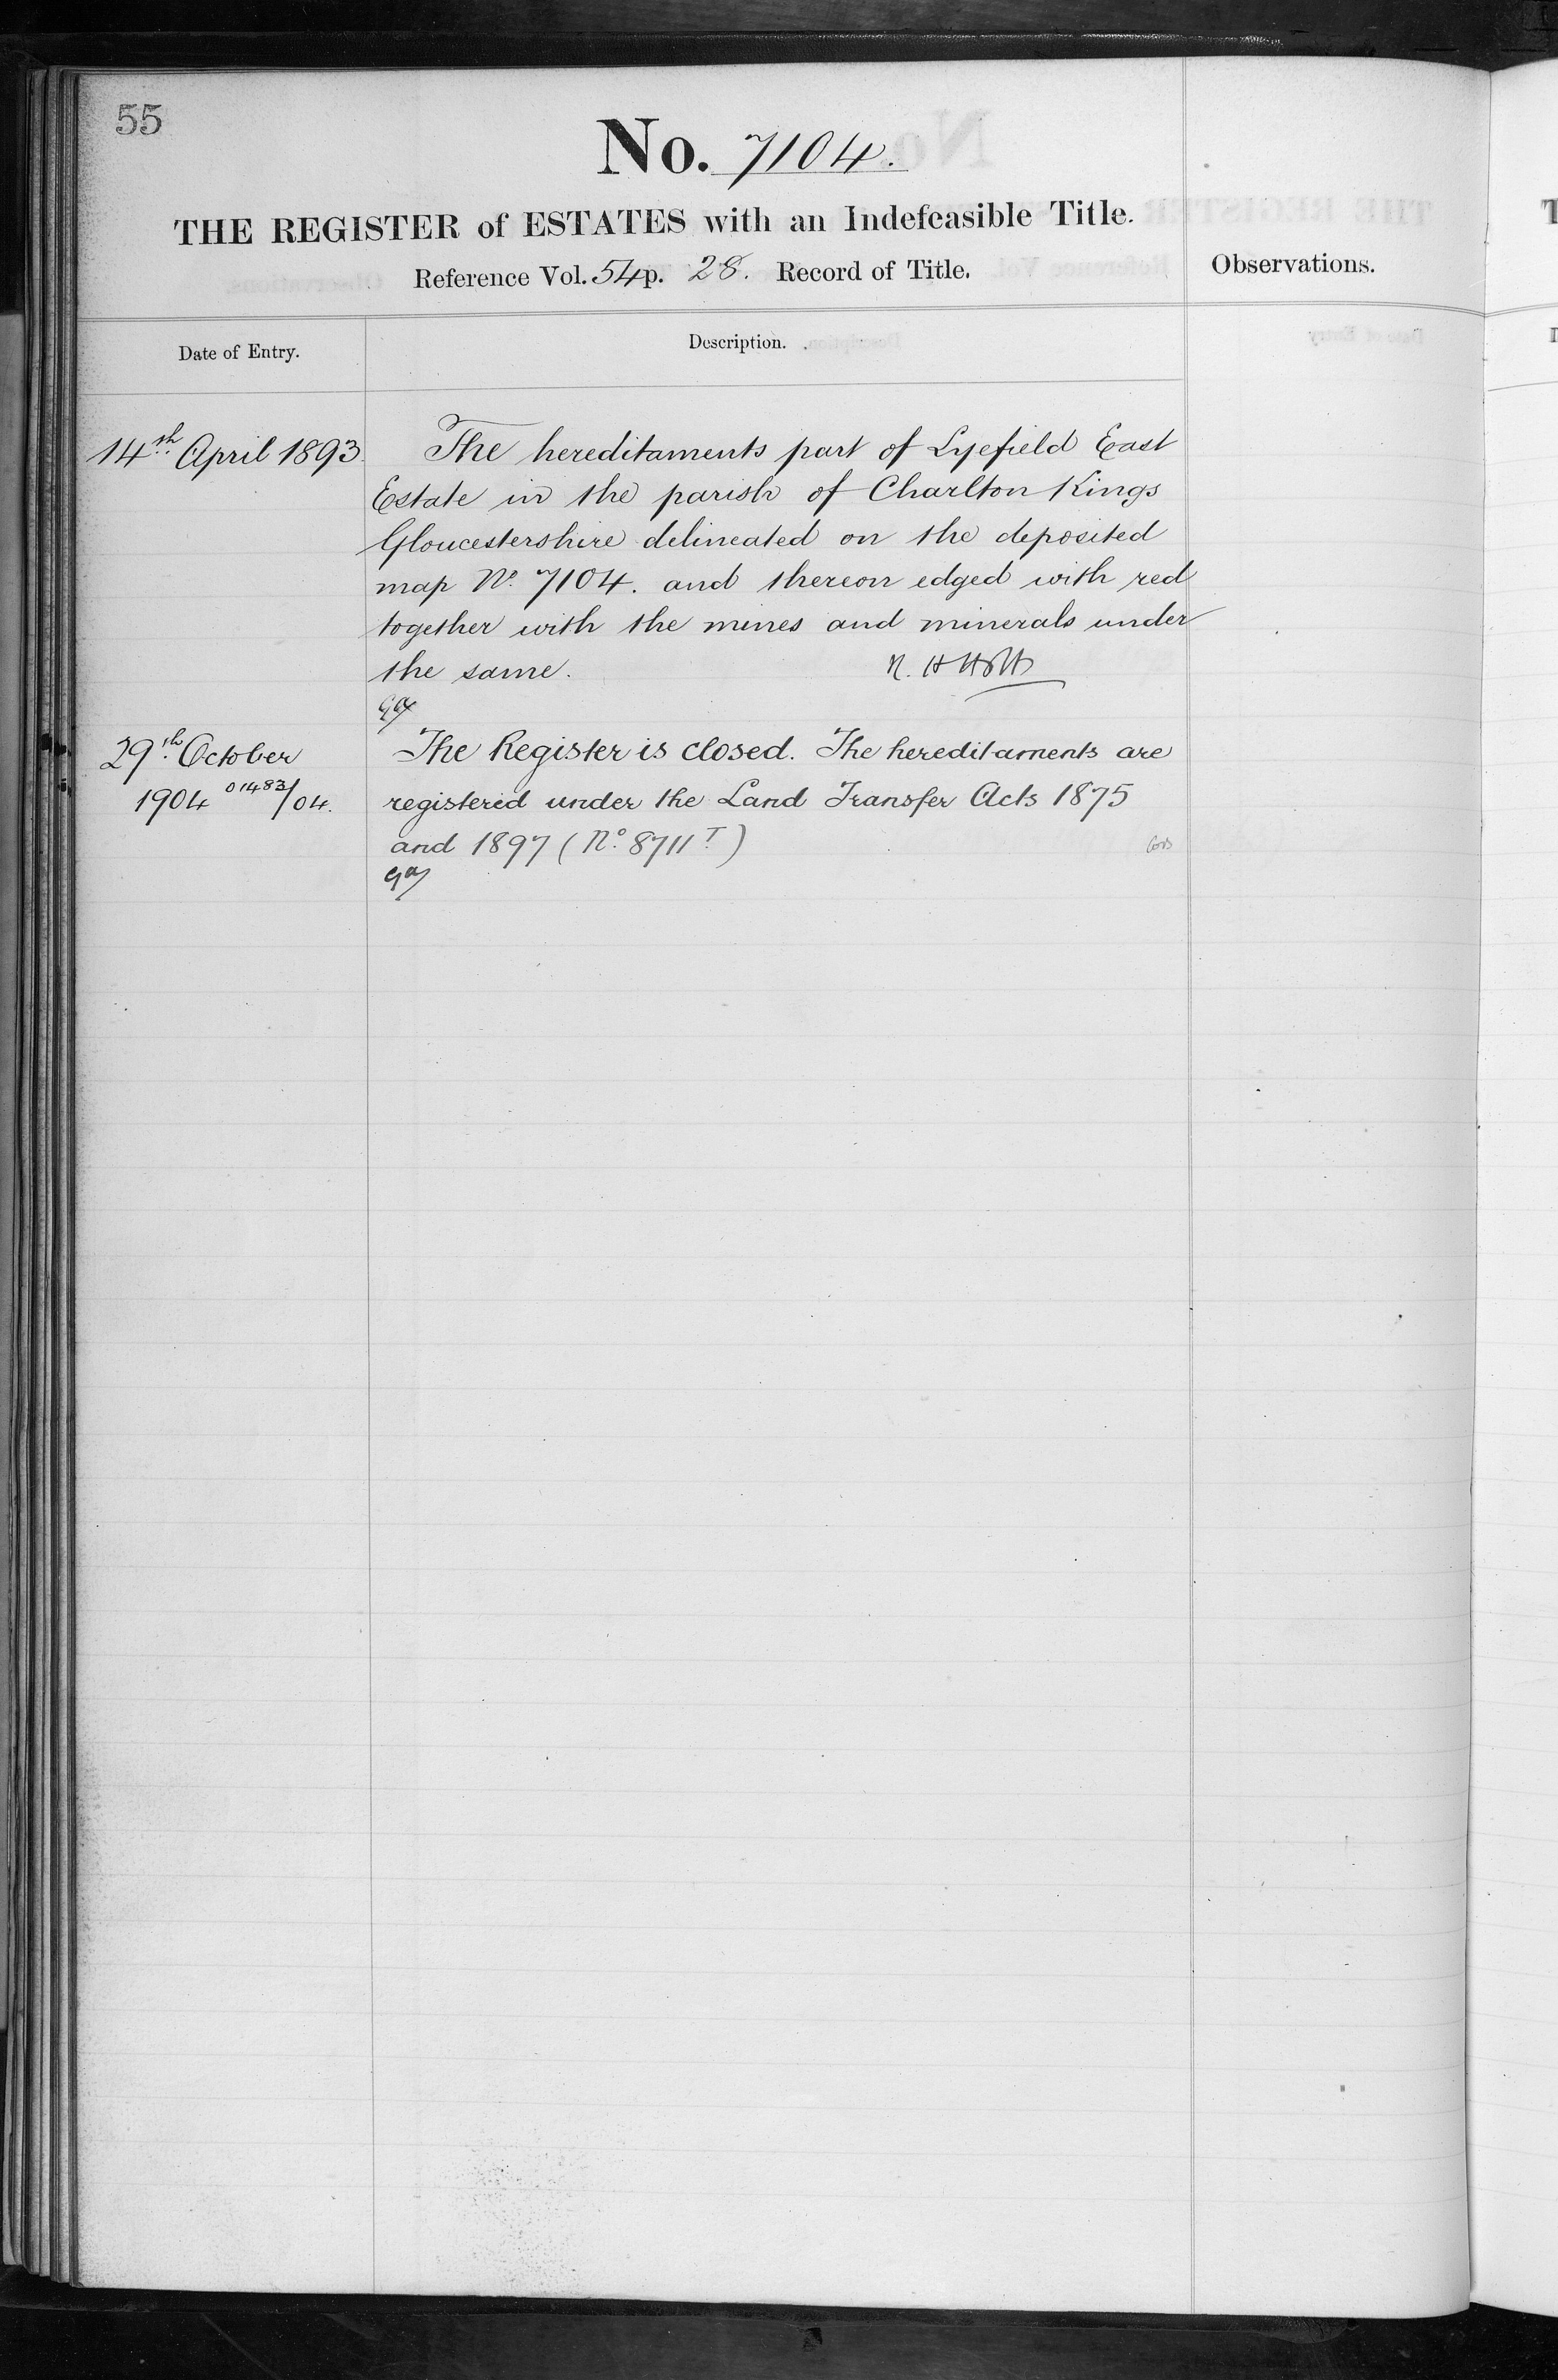 55
No. 7104.
THE REGISTER of ESTATES with an Indefeasible Title.
Reference Vol. 54 p. 28. Record of Title.
Observations.
Date of Entry.
Description.
14th April 1893
The hereditaments part of Lyefield East
Estate in the parish of Charlton Kings
Gloucestershire delineated on the deposited
map No. 7104. and thereon edged with red
together with the mines and minerals under
the same.
29th October
1904 01483/04.
The Register is closed. The hereditaments are
registered under the Land Transfer Acts 1875
and 1897 (No. 8711T)